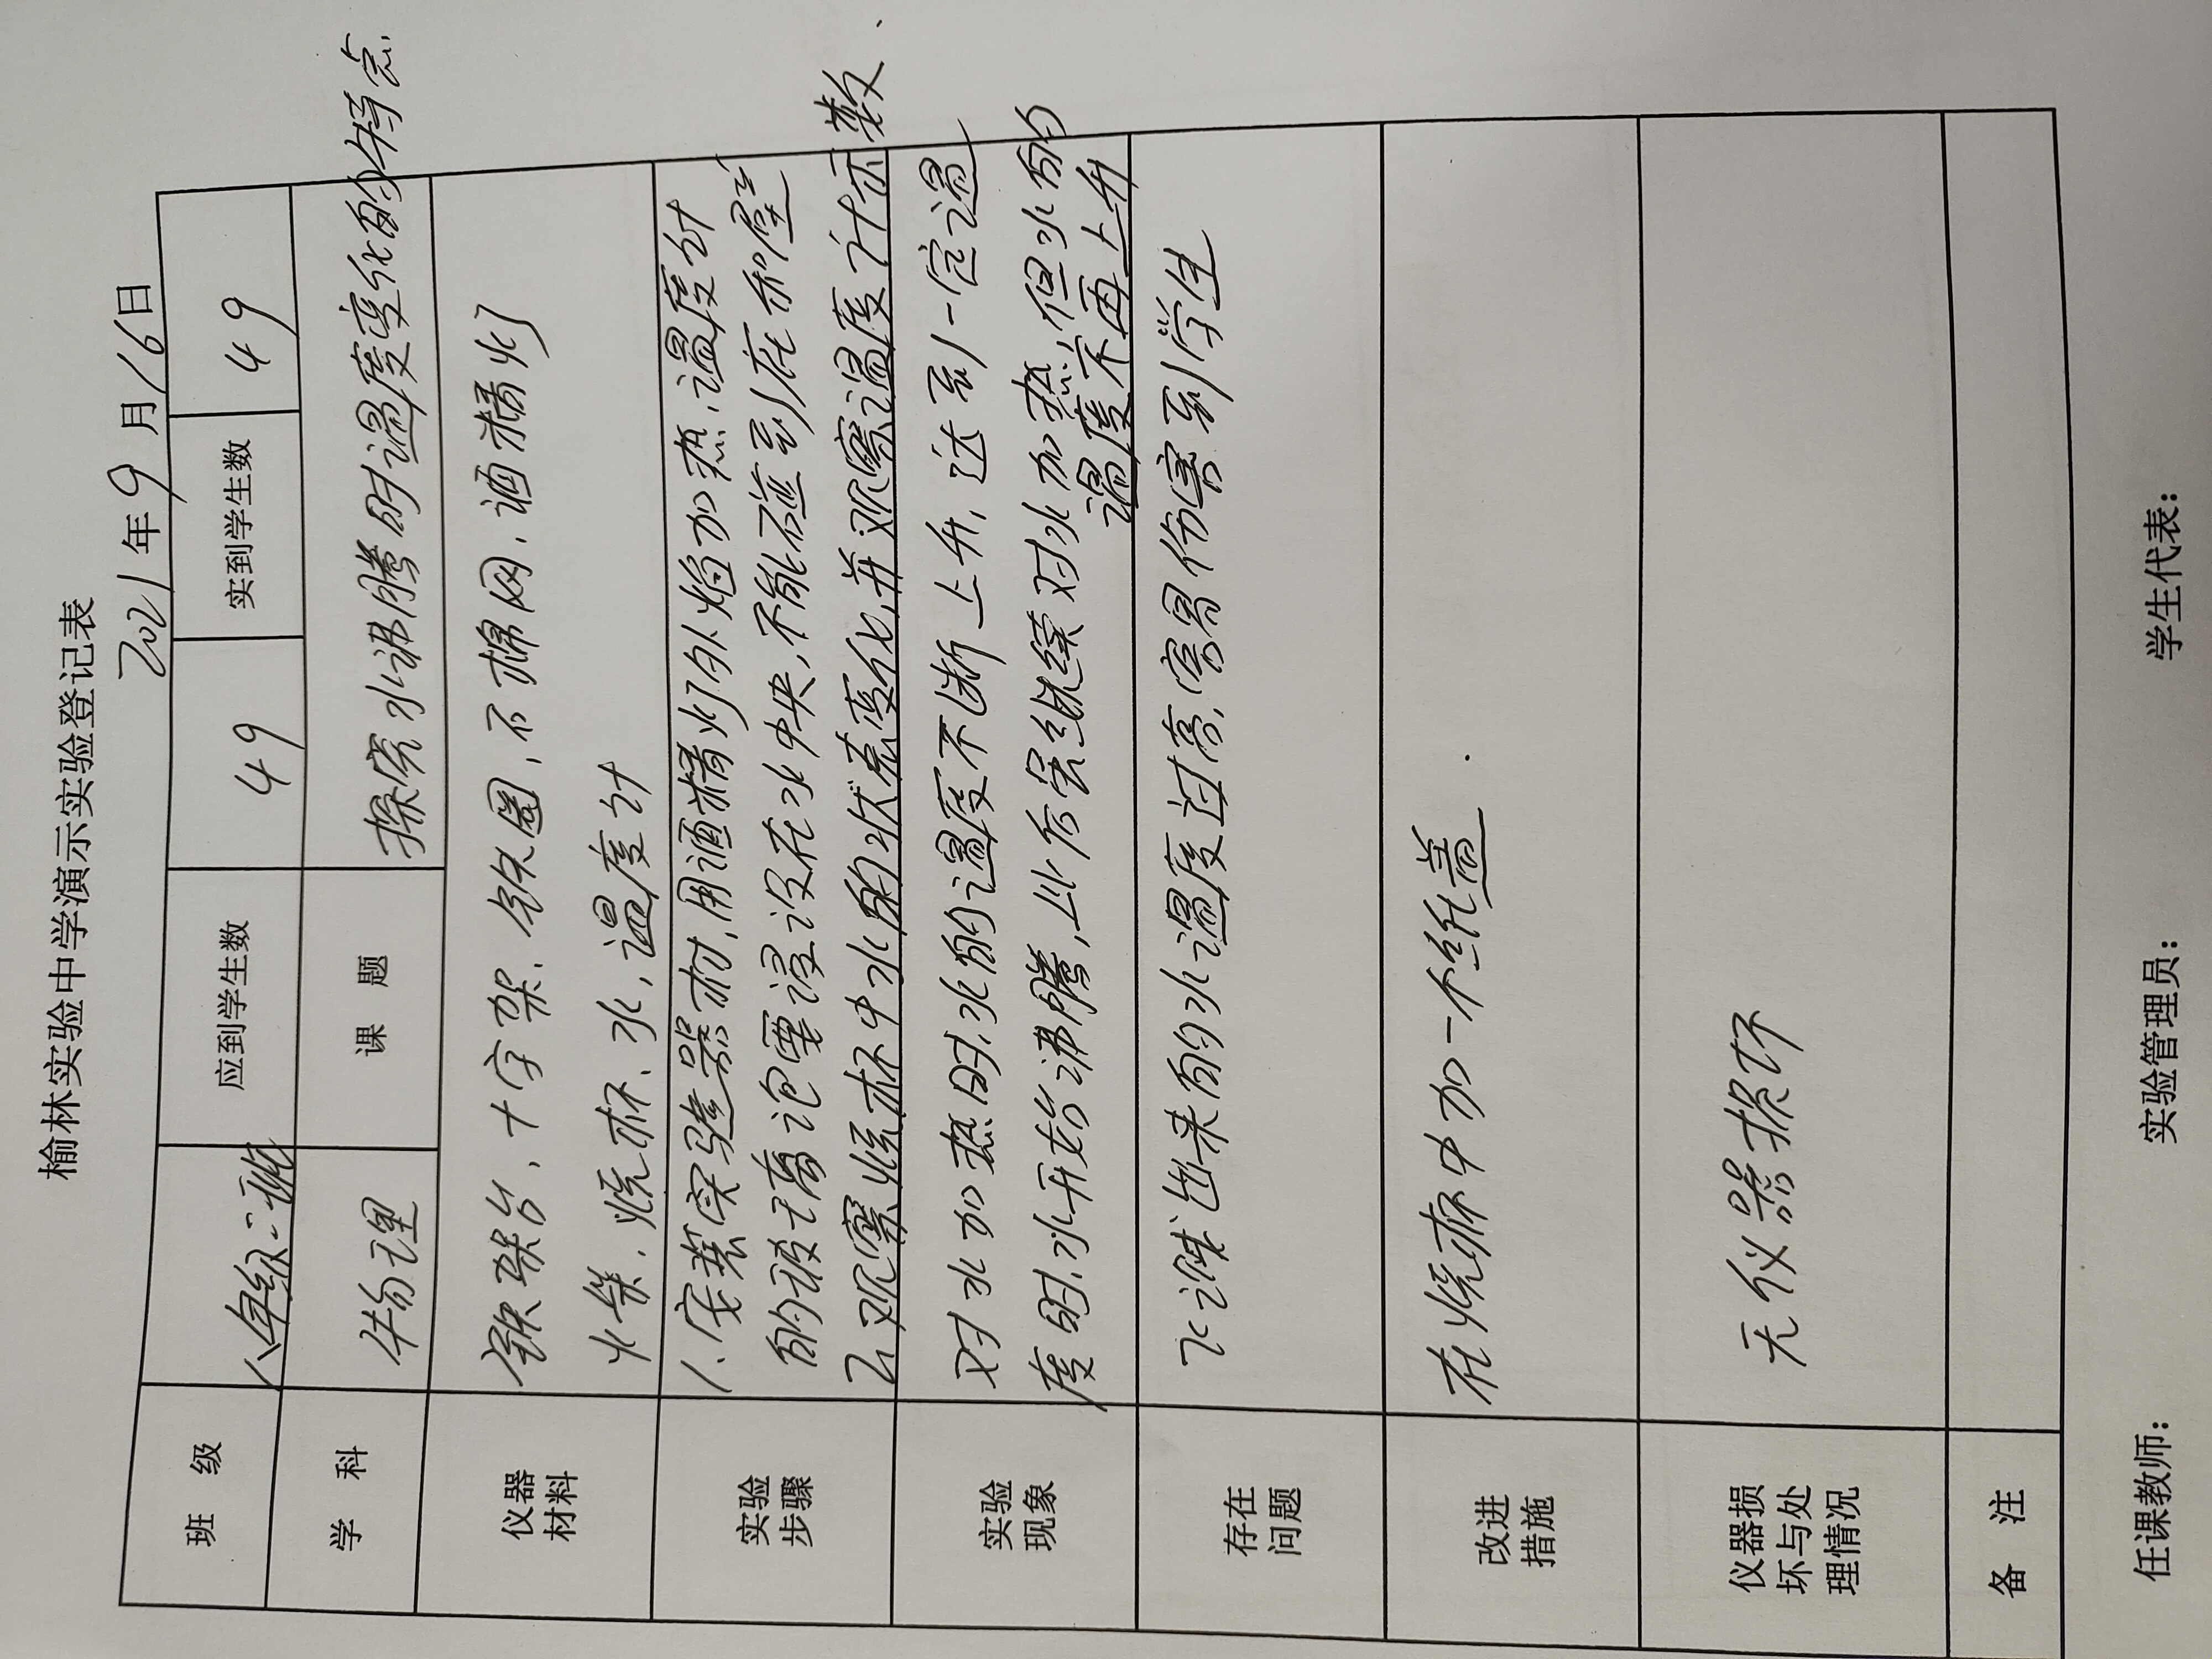 榆林实验中学演示实验登记表
2021年9月16日
班 级 八年级二班 应到学生数 49 实到学生数 49
学 科 物理 课 题 探究水沸腾时温度变化的特点
仪器材料 铁架台、十字架、铁圈、石棉网、酒精灯
火柴、烧杯、水、温度计
实验步骤 1、安装实验器材,用酒精灯的外焰加热,温度计
的玻璃泡要浸没在水中央,不能碰到底和壁
2、观察烧杯中水的状态变化,并观察温度计示数.
实验现象 对水加热时,水的温度不断上升,达到一定温
度时,水开始沸腾,此后虽继续对水加热,但水的
温度不再上升
存在问题 飞溅出来的水温度过高,容易伤害到学生
改进措施 在烧杯中加一个纸盖.
仪器损坏与处理情况 无仪器损坏
备 注
任课教师: 实验管理员: 学生代表: